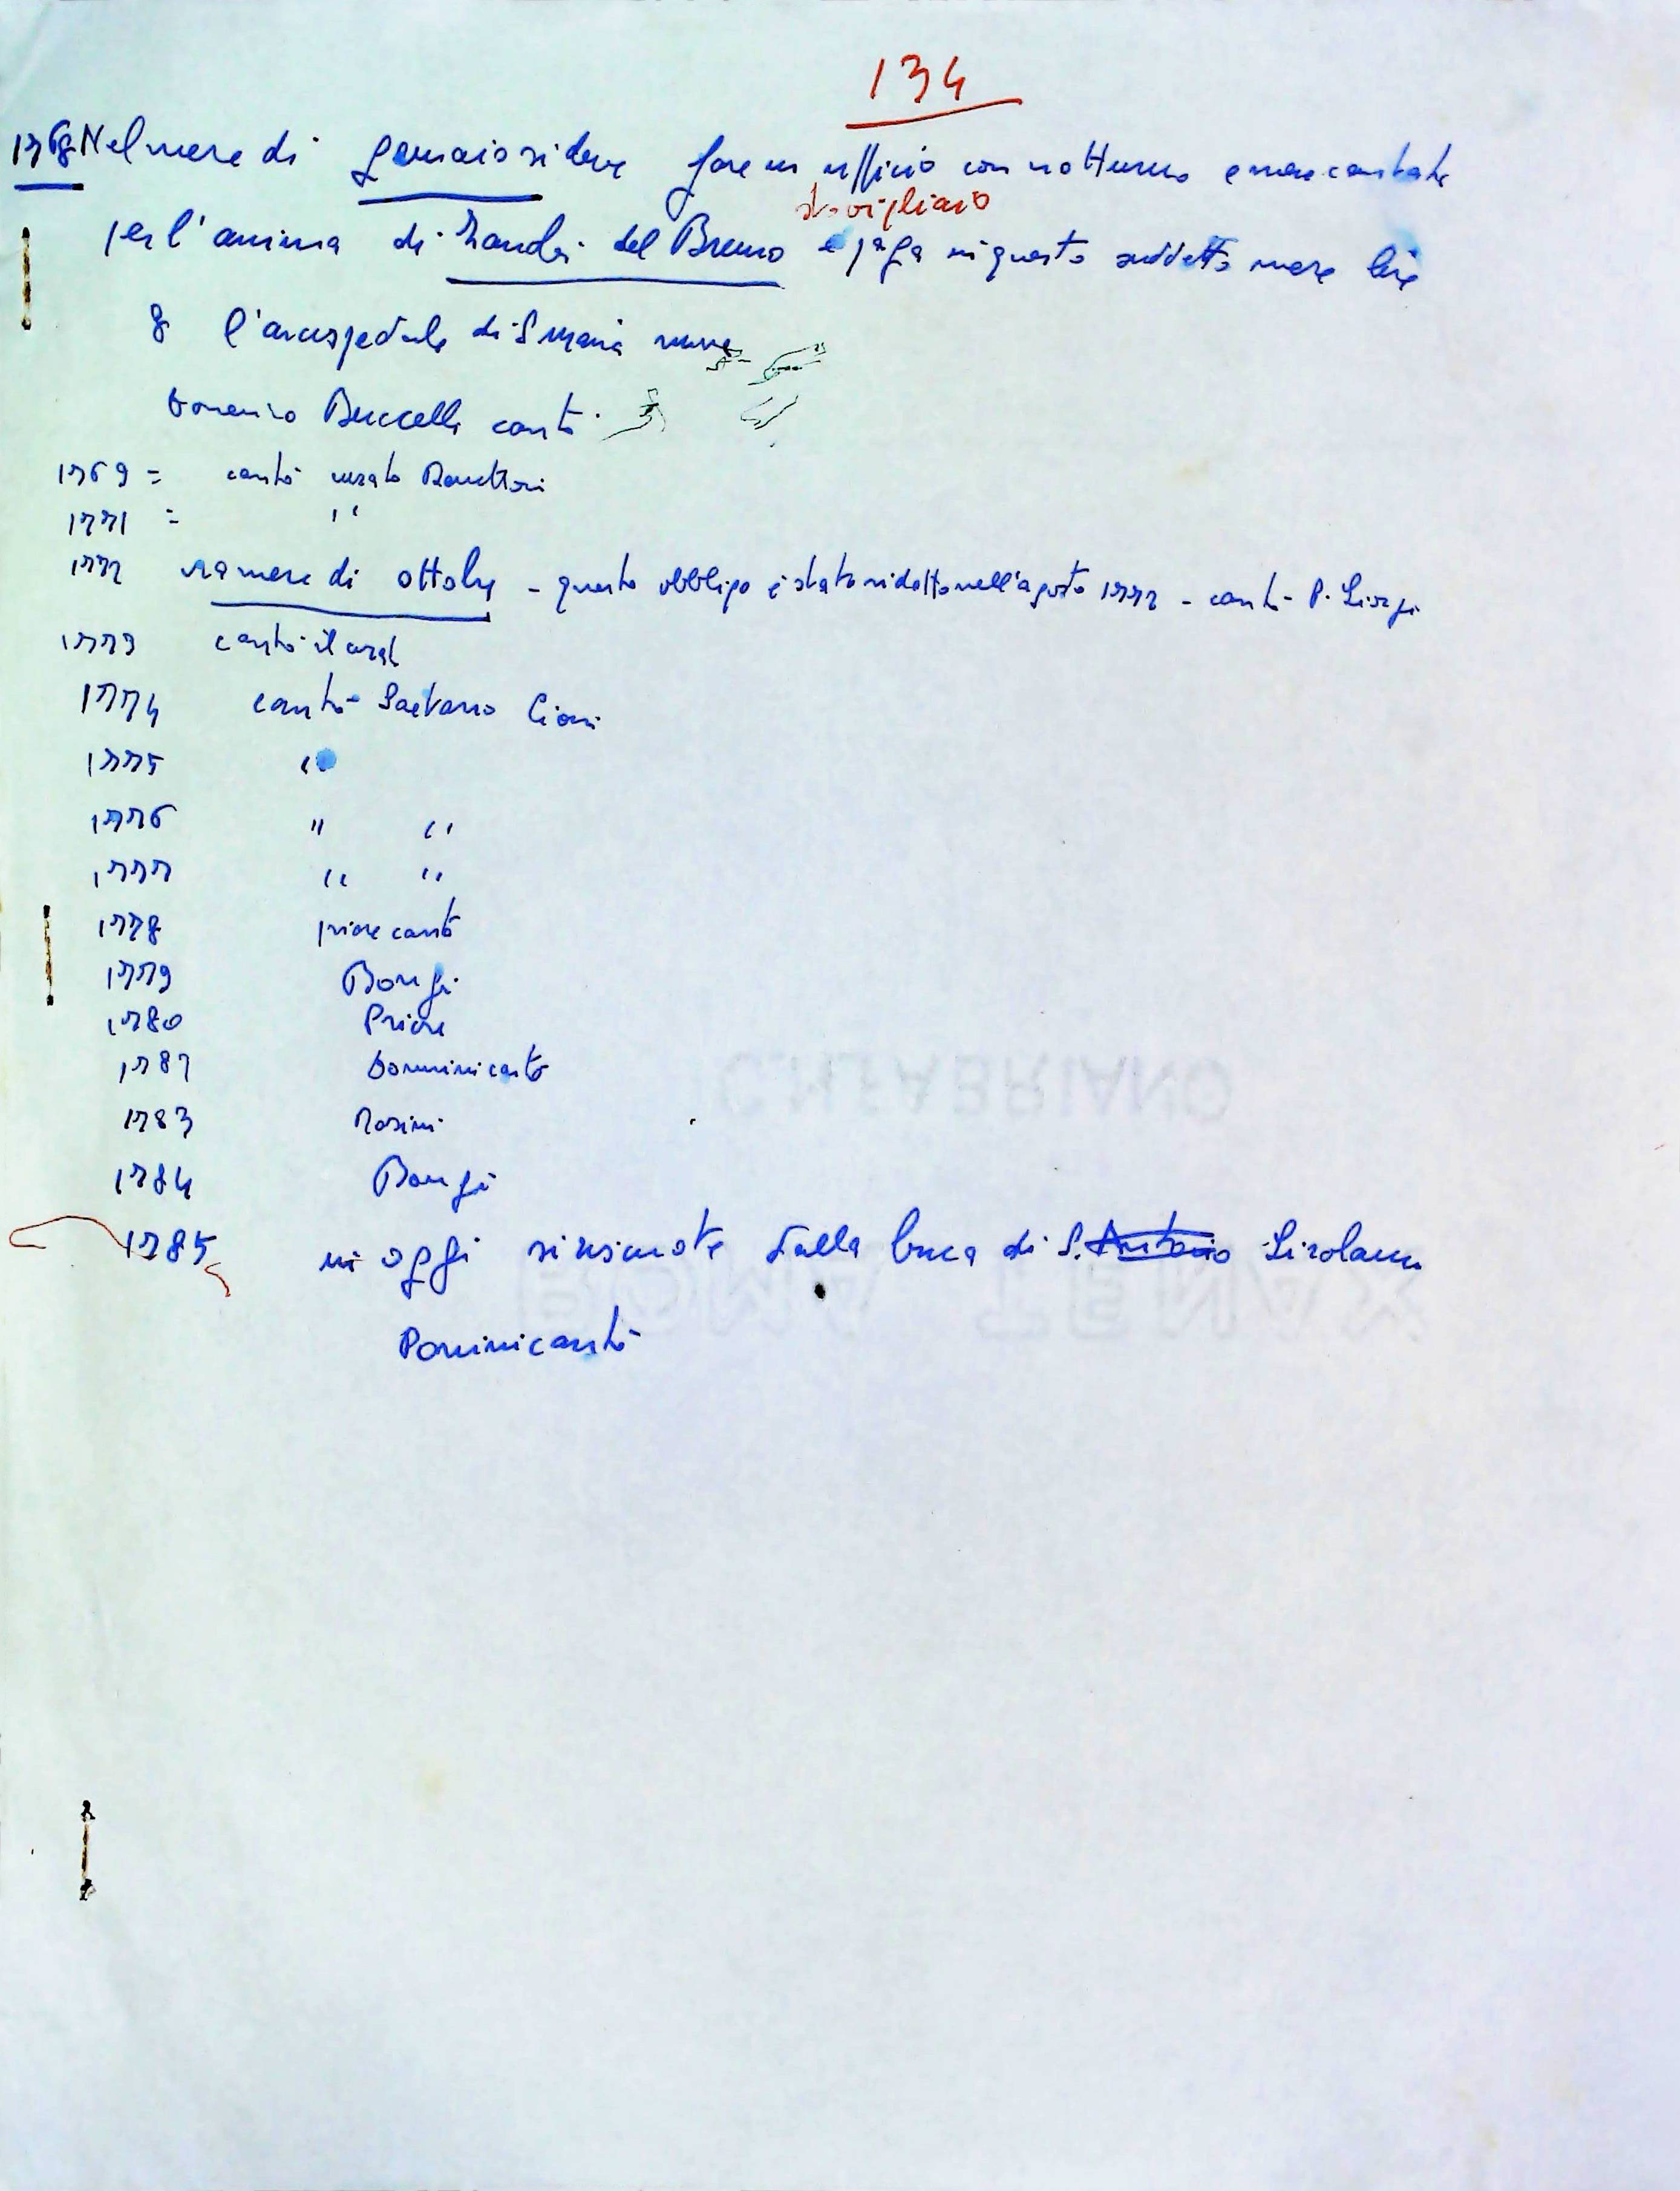 134
1768 Nel mese di gennaio si deve fare un uffizio con notturno e messe cantate
stovigliaio
per l'anima di Zanobi del Bruno e paga in questo suddetto mese lire
8 l'arcispedale di S Maria nuova
Domenico Buccelli cantò
1769 = cantò curato Banchori
1771 = "
1772 ra mese di ottobre - questo obbligo è stato ridotto nell'agosto 1772 - cantò P. Giorgi
1773 cantò il curat
1774 cantò Gaetano Cioni
1775 "
1776 " "
1777 " "
1778 priore cantò
1779 Bongi
1780 Priore
1781 Dominicantò
1783 Rosini
1784 Bongi
1785 in oggi si riscuote dalla buca di S. Antonio Girolamo
Dominicantò
C.M.FABRIANO
TENAX